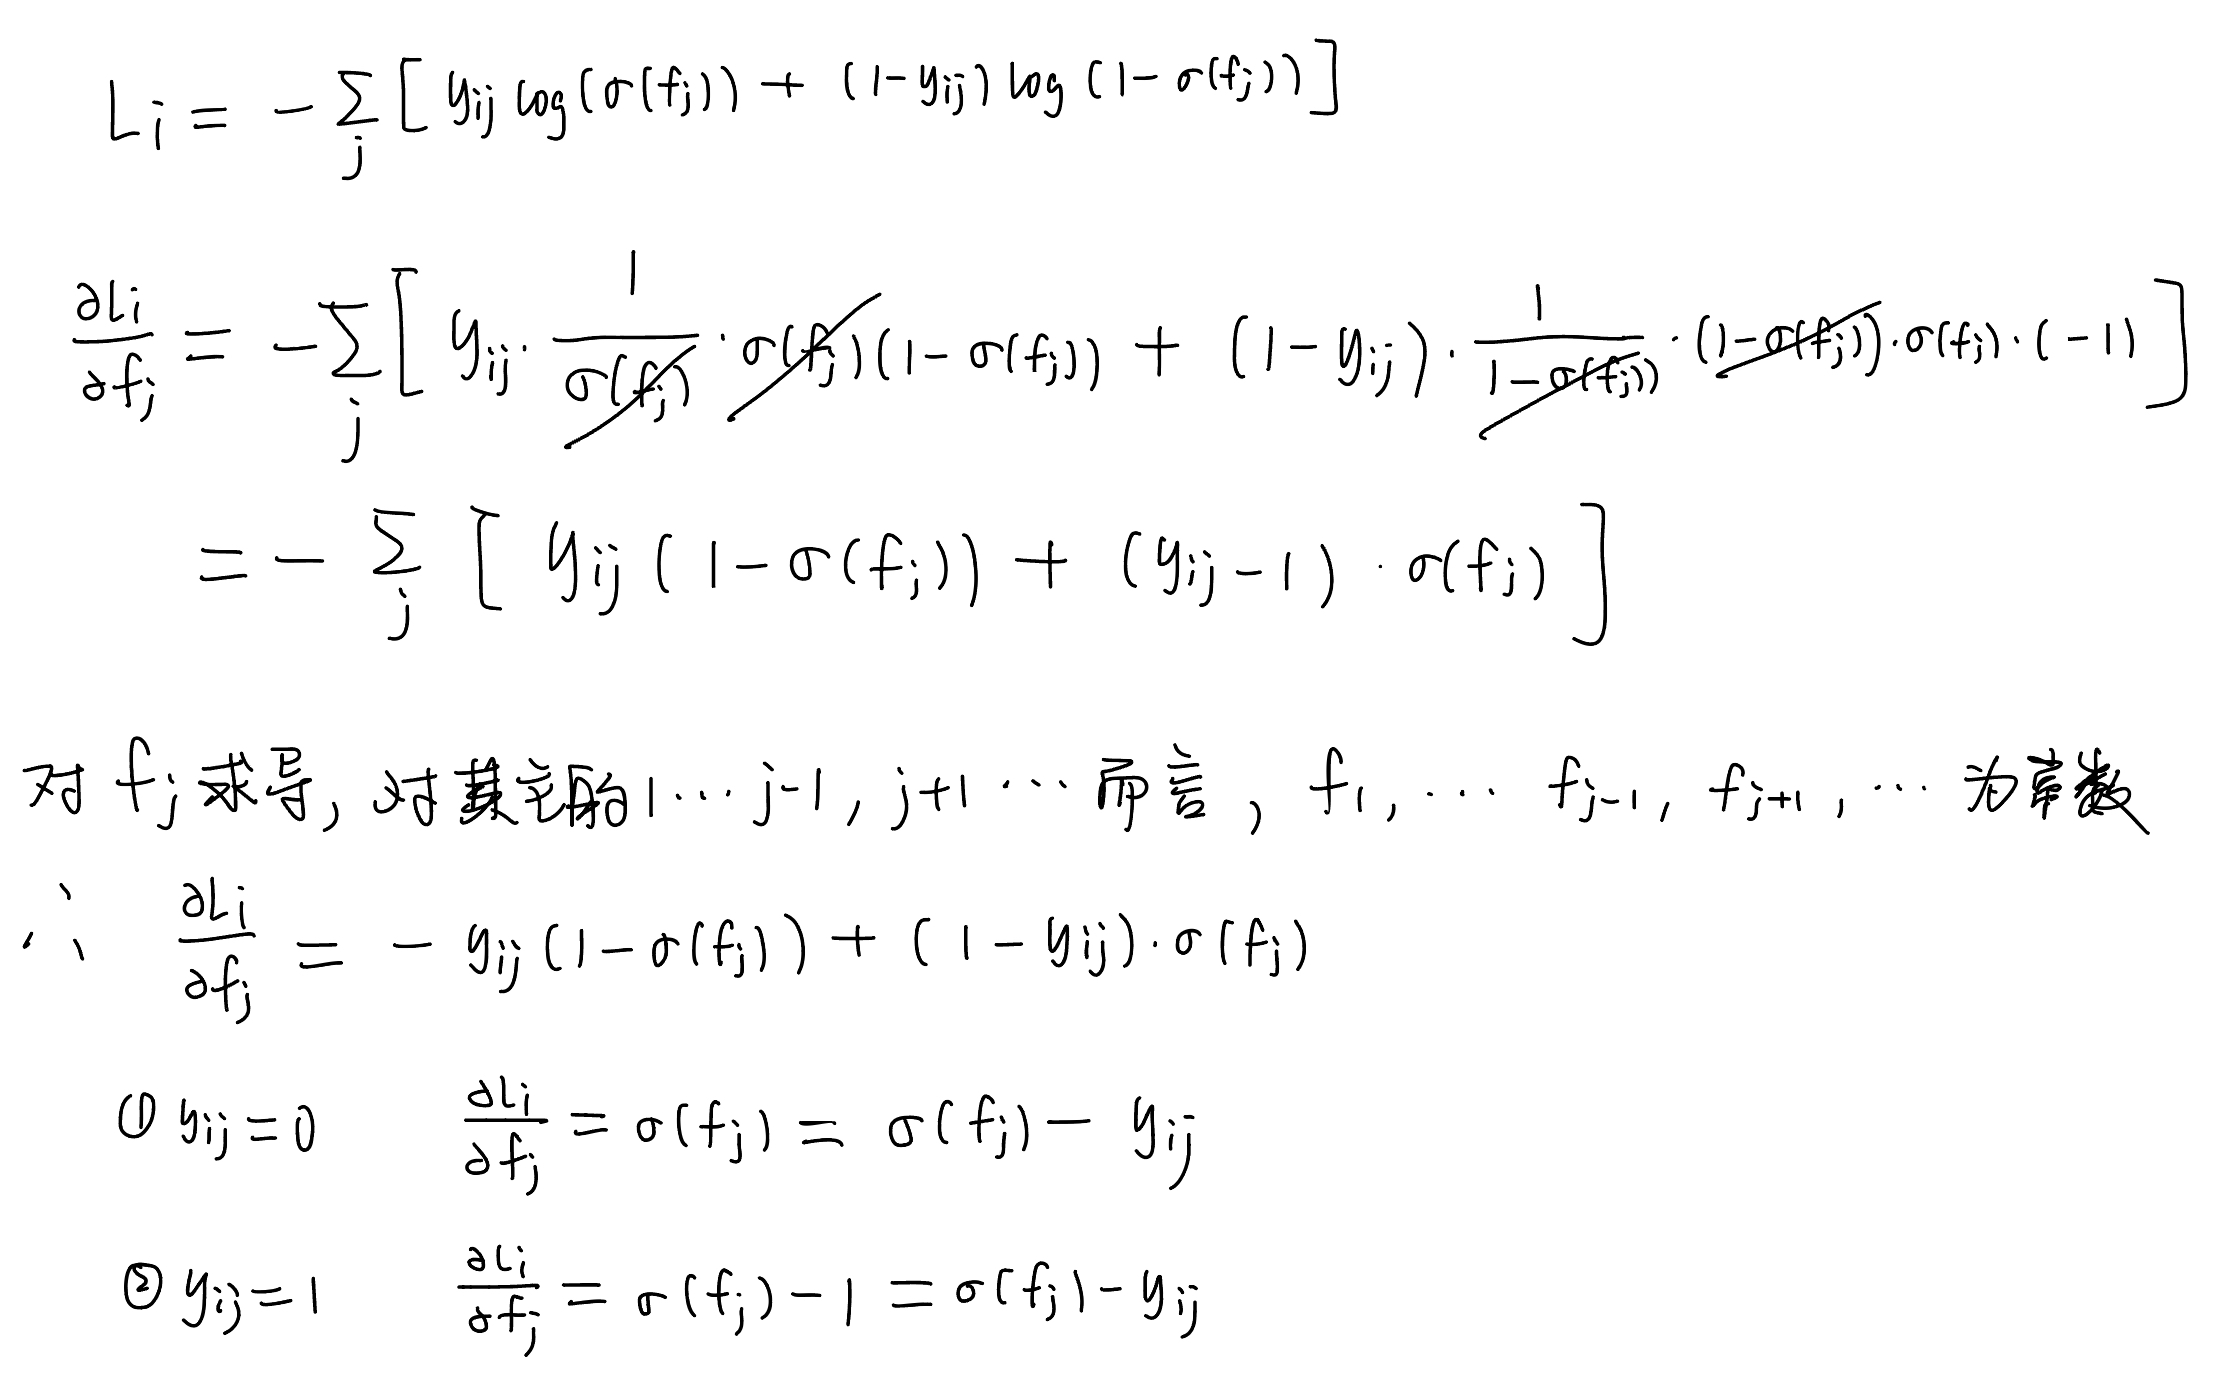 Li = - ∑_j [ y_ij log(σ(f_j)) + (1-y_ij) log (1-σ(f_j)) ]
∂Li/∂f_j = -∑_j [ y_ij · 1/σ(f_j) · σ(f_j)(1-σ(f_j)) + (1-y_ij) · 1/(1-σ(f_j)) · (1-σ(f_j))·σ(f_j)·(-1) ]
= - ∑_j [ y_ij (1-σ(f_j)) + (y_ij-1) · σ(f_j) ]
对 f_j 求导, 对其它的 1 ⋯ j-1, j+1 ⋯ 而言, f_1, ⋯ f_{j-1}, f_{j+1}, ⋯ 为常数
∴ ∂Li/∂f_j = - y_ij (1-σ(f_j)) + (1-y_ij)·σ(f_j)
① y_ij = 0 ∂Li/∂f_j = σ(f_j) = σ(f_j) - y_ij
② y_ij = 1 ∂Li/∂f_j = σ(f_j) - 1 = σ(f_j) - y_ij